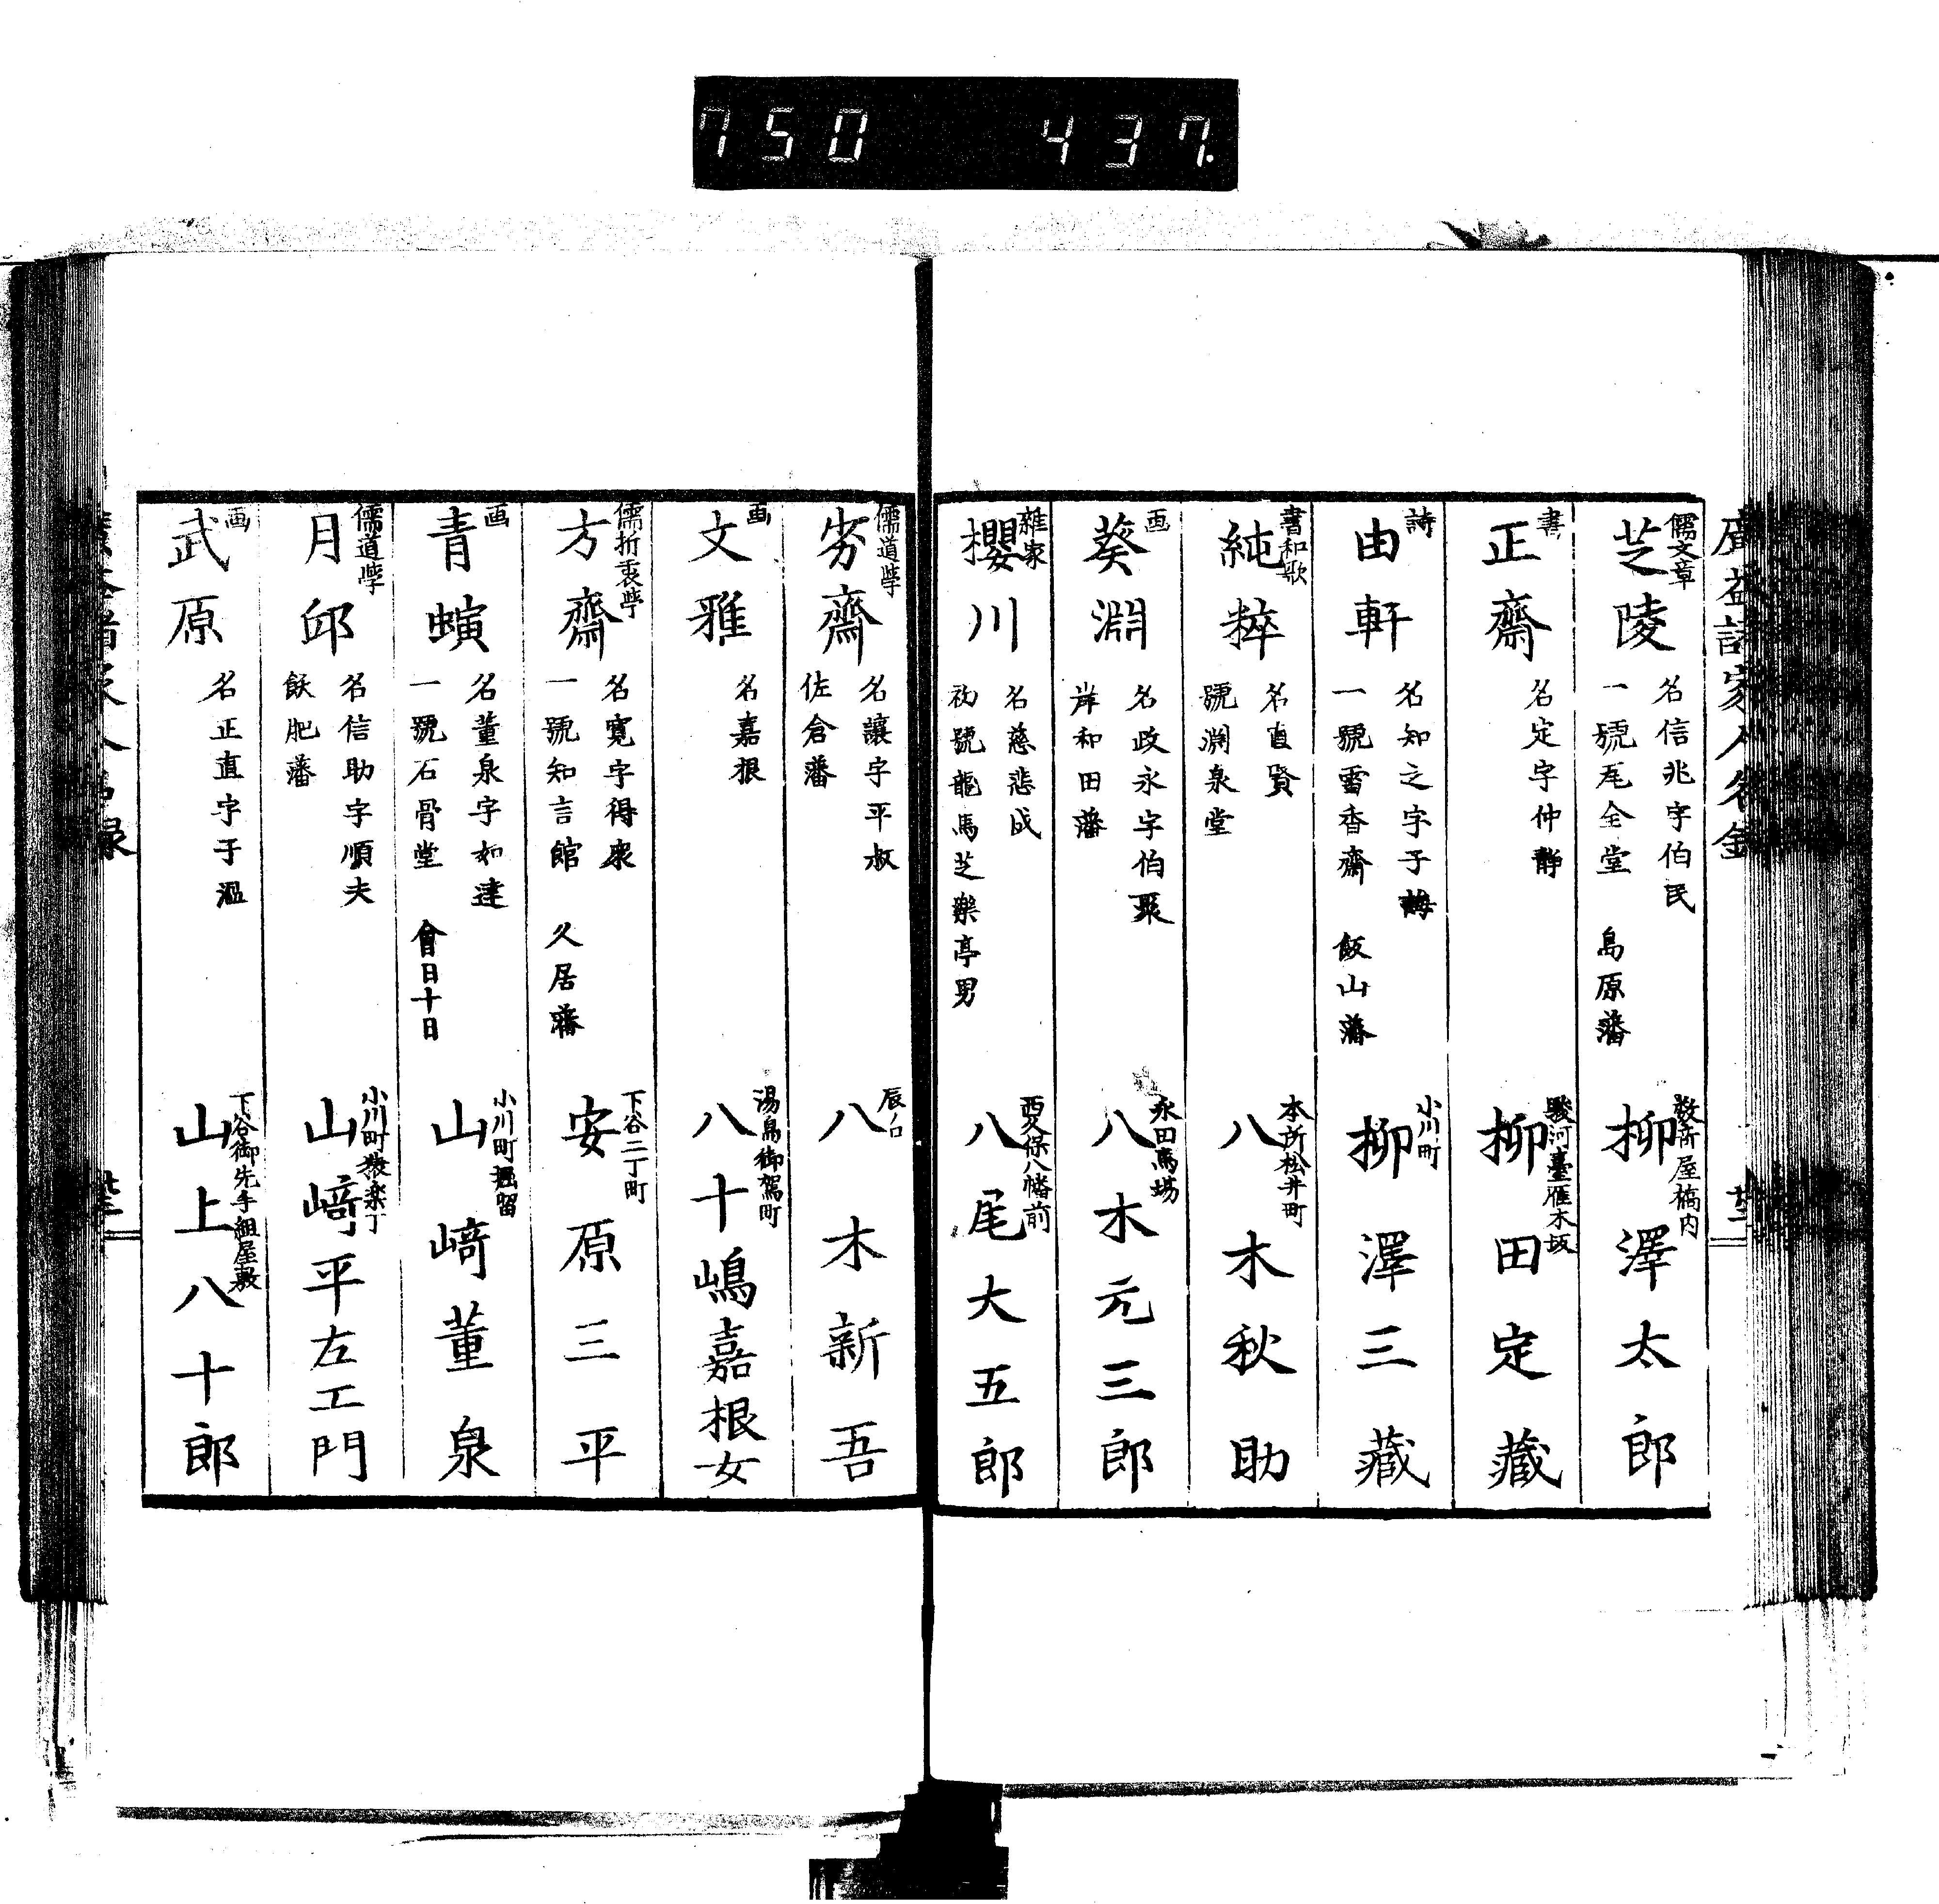 750 437.
儒文章
芝陵
名信兆字伯民
一號尾全堂 島原藩
数寄屋橋内
柳澤太郎
書
正齋
名定字仲靜
駿河臺雁木坂
柳田定藏
詩
由軒
名知之字子
一號雪香齋 飯山藩
小川町
柳澤三藏
書和歌
純粹
名直賢
號淵泉堂
本所松井町
八木秋助
画
葵淵
名政永字伯聚
岸和田藩
永田馬場
八木元三郎
雜家
櫻川
名慈悲成
初號龍馬芝樂亭男
西久保八幡前
八尾大五郎
儒道學
齋
名讓字平叔
佐倉藩
辰ノ口
八木新吾
画
文雅
名嘉根
湯島御駕町
八十嶋嘉根女
儒折衷學
方齋
名寛字得衆
一號知言館 久居藩
下谷二丁町
安原三平
画
青蟥
名董泉字如達
一號石骨堂 會日十日
小川町堀留
山﨑董泉
儒道學
月邱
名信助字順夫
飫肥藩
小川町猿楽丁
山﨑平左工門
画
武原
名正直字子温
下谷御先手組屋敷
山上八十郎